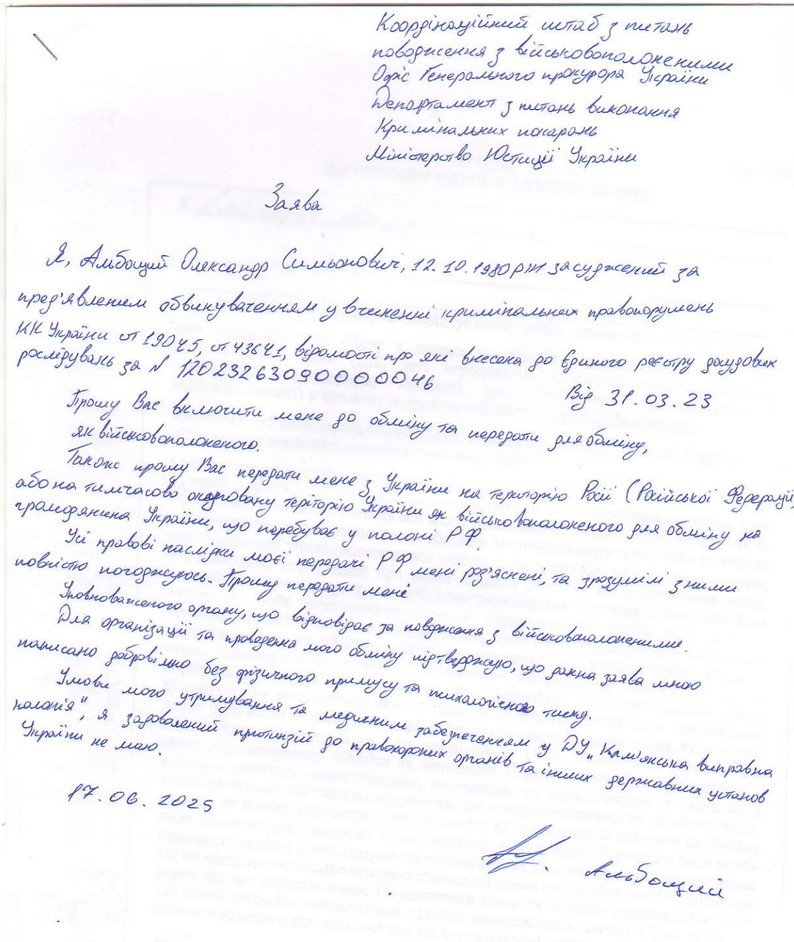 Координаційний штаб з питань
поводження з військовополоненими
Офіс Генерального прокурора України
Департамент з питань виконання
Кримінальних покарань
Міністерство Юстиції України
Заява
Я, Албощий Олександр Симьонович, 12.10.1980 рн засуджений за
пред'явленим обвинуваченням у вчиненні кримінальних правопорушень
КК України ст 190ч5, ст 436ч1, відомості про які внесена до Єдиного реєстру досудових
розслідувань за № 12023263090000046 Від 31.03.23
Прошу Вас включити мене до обміну та передати для обміну,
як військовополоненого.
Також прошу Вас передати мене з України на територію Росії (Російської Федерації)
або на тимчасово окуповану територію України як військовополоненого для обміну на
громадянина України, що перебуває у полоні РФ.
Усі правові наслідки моєї передачі РФ мені роз'яснені, та зрозумілі з ними
повністю погоджуюсь. Прошу передати мене
Уповноваженого органу, що відповідає за поводження з військовополоненими.
Для організації та проведення мого обміну підтверджую, що данна заява мною
написано добровільно без фізичного примусу та психологічного тиску.
Умови мого утримування та медичним забезпеченням у ДУ „Кам'янська виправна
колонія", я задоволений притинзій до правохоронних органів та інших державних установ
України не маю.
17.06.2025
Альбощий